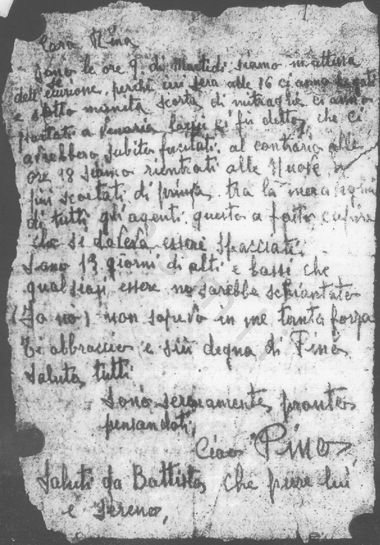 Cara Nina
sono le ore 9 di Martedì siamo in attesa
dell'esecuzione, perchè ieri sera alle 16 ci anno legati
e sotto munita scorta di mitraglie ci anno
portati a Venaria, lassi ci fu detto, che ci
avrebbero subito fucilati, al contrario alle
ore 18 siamo rientrati alle Nuove,
più scortati di prima, tra la
di tutti gli agenti, questo a fatto capire
che si doveva essere spacciati.
Sono 13 giorni di alti e bassi che
qualsiasi essere ne sarebbe schiantato
(Io no) non sapevo in me tanta forza
Ti abbraccio e sii degna di Pino
saluta tutti
Sono serenamente pronto
pensandoti,
Ciao Pino,
Saluti da Battista, che pure lui
è sereno,